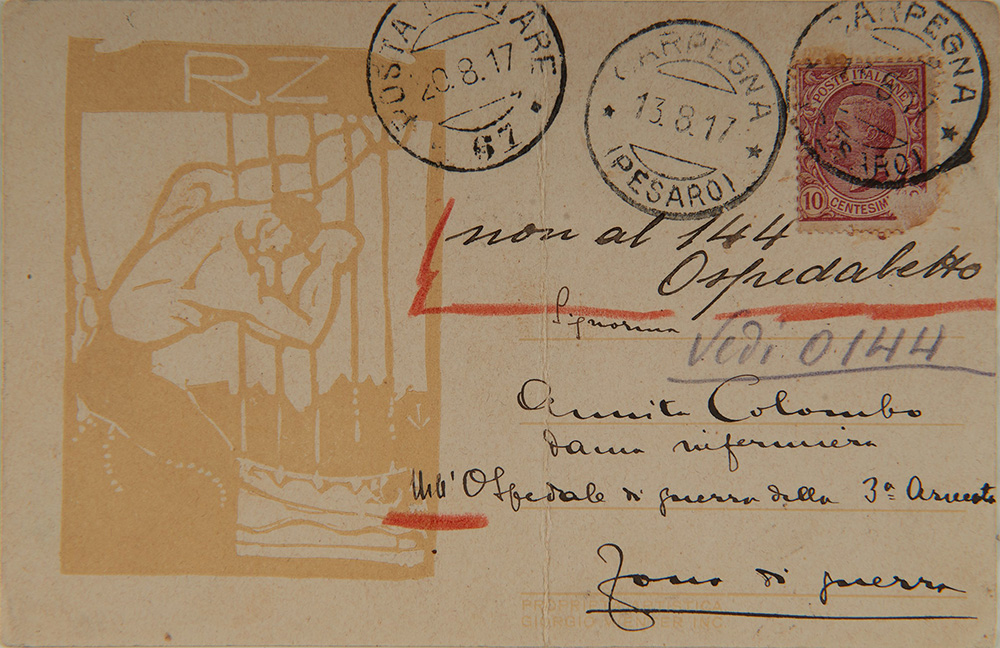 RZ
POSTA MILITARE
20.8.17
67
CARPEGNA
13.8.17
(PESARO)
CARPEGNA
POSTE ITALIANE
10 CENTESIMI
non al 144
Ospedaletto
Signorina
Vedi 0144
Annita Colombo
dama infermiera
Ospedale di guerra della 3ª Armata
Zona di guerra
PROPR
GIORGIO INC